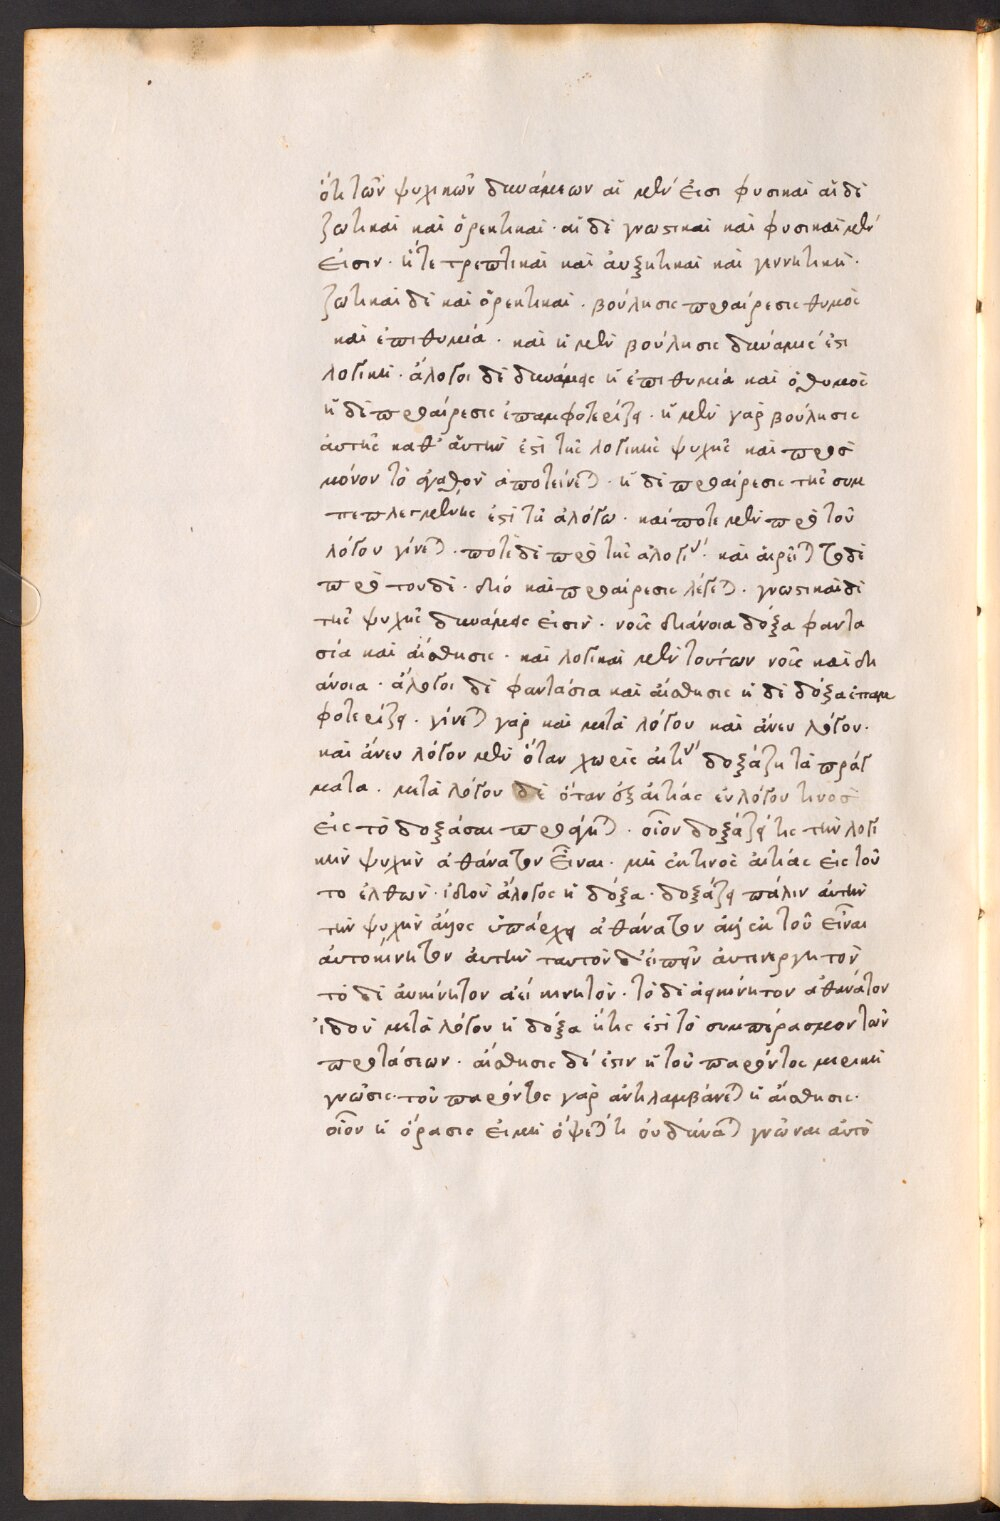 ὅτι τῶν ψυχικῶν δυνάμεων αἱ μέν εἰσι φυσικαὶ αἱ δὲ
ζωτικαὶ καὶ ὀρεκτικαὶ · αἱ δὲ γνωστικαὶ καὶ φυσικαὶ μέν
εἰσιν · ἥτε τρεπτικαὶ καὶ ἀυξητικαὶ καὶ γεννητικὴ ·
ζωτικαὶ δὲ καὶ ὀρεκτικαὶ · βούλησις προαίρεσις θυμὸς
καὶ ἐπιθυμία · καὶ ἡ μὲν βούλησις δύναμίς ἐστι
λογικὴ · ἄλογοι δὲ δυνάμεις ἡ ἐπιθυμία καὶ ὁ θυμὸς
ἡ δὲ προαίρεσις ἐπαμφοτερίζει · ἡ μὲν γὰρ βούλησις
ἀυτῆς καθ' ἁυτὴν ἐστὶ τῆς λογικῆς ψυχῆς καὶ προσ
μόνον τὸ ἀγαθὸν ἀποτείνεται · ἡ δὲ προαίρεσις τῆς συμ
πεπλεγμένης ἐστὶ τῆ ἀλόγω · καί ποτε μὲν πρὸ τοῦ
λόγου γίνεται · ποτὲ δὲ πρὸ τῆς ἀλογίας · καὶ ἁιρεῖται τόδε
πρὸ τουδὲ · διό καὶ προαίρεσις λέγεται · γνωστικαὶ δὲ
τῆς ψυχῆς δυνάμεις εἰσὶν · νοῦς διάνοια δόξα φαντα
σία καὶ ἀίσθησις · καὶ λογικαὶ μὲν τουτων νοῦς καὶ δι
άνοια · ἄλογοι δὲ φαντάσια καὶ ἀίσθησις ἡ δὲ δόξα ἐπαμ
φοτερίζει · γίνεται γὰρ καὶ μετὰ λόγου καὶ ἀνευ λόγου ·
καὶ ἄνευ λόγου μὲν ὅταν χωρὶς ἀιτίας δοξάζη τὰ πράγ
ματα · μετὰ λόγου δὲ ὅταν ἐξ ἀιτίας ἐυλόγου τινοσ
εἰς τὸ δοξάσαι προάγηται · οἷον δοξάζει τις τὴν λογι
κὴν ψυχὴν ἀθάνατον εἶναι · μὴ ἐκ τινὸς ἀιτίας εἰς τοῦ
το ἐλθὼν · ἰδοὺ ἄλογος ἡ δόξα · δοξάζει πάλιν ἀυτὴν
τὴν ψυχὴν ὑπάρχειν ἀθάνατον ἐκ τοῦ εἶναι
ἀυτοκίνητον ἀυτὴν ταυτὸν δ' εἰπεῖν ἀυτενεργητον
τὸ δὲ ἀυκίνητον ἀεί κινητὸν · τὸ δὲ ἀεικίνητον ἀθάνατον
ἰδοὺ μετὰ λόγου ἡ δόξα ἥτις ἐστὶ τὸ συμπέρασμον τῶν
προτάσεων · ἀίσθησις δέ ἐστιν ἡ τοῦ παρόντος μερικὴ
γνῶσις · τοῦ παρόντος γὰρ ἀντιλαμβάνεται ἡ ἀίσθησις ·
οἷον ἡ ὅρασις εἰ μὴ ὄψεταί τι ὀυ δύναται γνῶναι ἀυτὸ